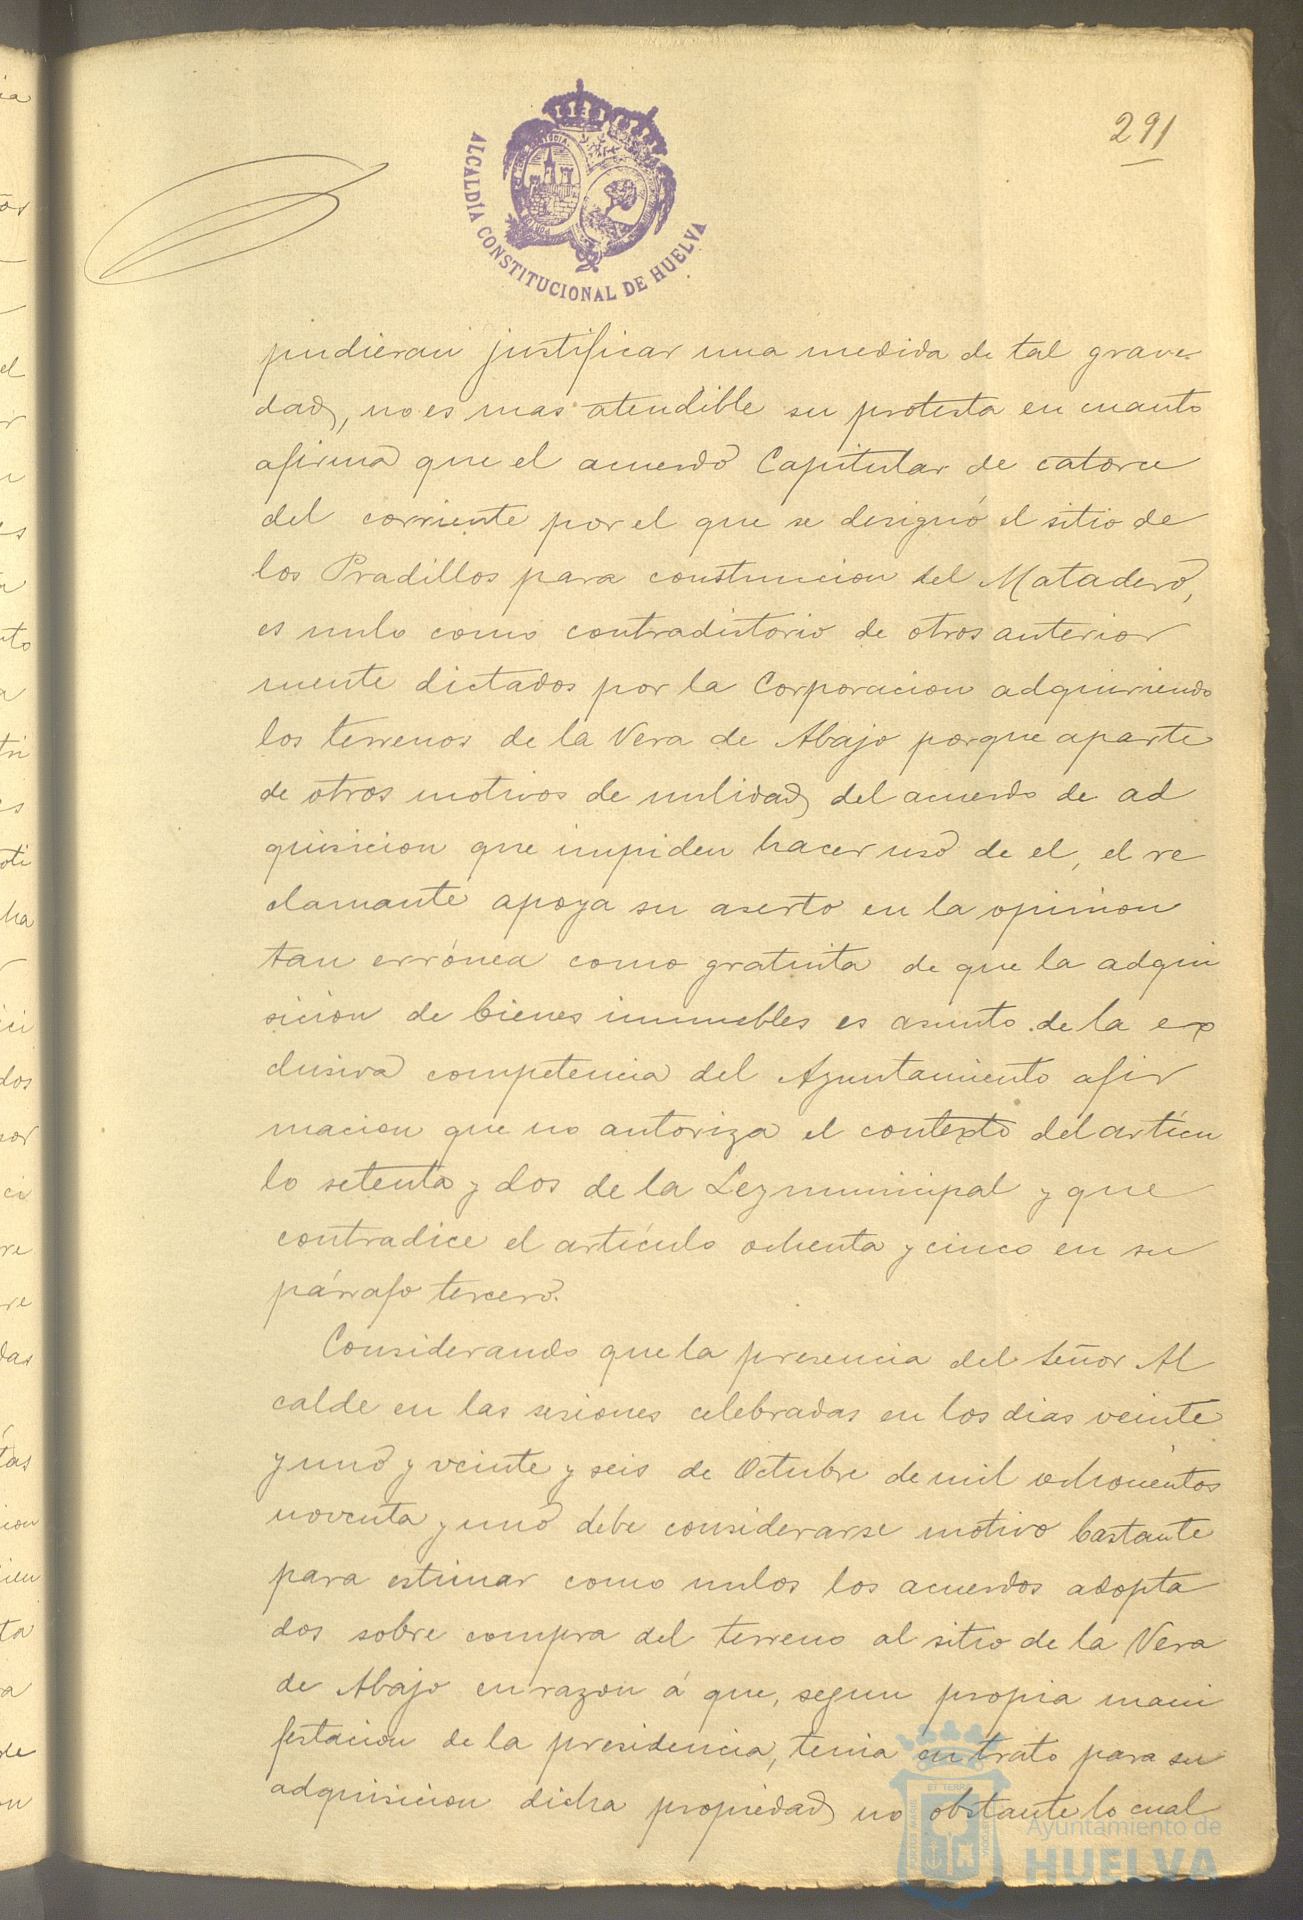 291
ALCALDÍA CONSTITUCIONAL DE HUELVA
pudieran justificar una medida de tal grave-
dad, no es mas atendible su protesta en cuanto
afirma que el acuerdo Capitular de catorce
del corriente por el que se designó el sitio de
los Pradillos para construccion del Matadero,
es nulo como contradictorio de otros anterior
mente dictados por la Corporacion adquiriendo
los terrenos de la Vera de Abajo porque aparte
de otros motivos de nulidad del acuerdo de ad
quisicion que impiden hacer uso de el, el re
clamante apoya su aserto en la opinion
tan errónea como gratuita de que la adqui
sicion de bienes inmuebles es asunto de la ex
clusiva competencia del Ayuntamiento afir
macion que no autoriza el contexto del artícu
lo setenta y dos de la Ley municipal y que
contradice el artículo ochenta y cinco en su
párrafo tercero.
Considerando que la presencia del Señor Al
calde en las sesiones celebradas en los dias veinte
y uno y veinte y seis de Octubre de mil ochocientos
noventa y uno debe considerarse motivo bastante
para estimar como nulos los acuerdos adopta
dos sobre compra del terreno al sitio de la Vera
de Abajo en razon á que, segun propia mani
festacion de la presidencia, tenia en trato para su
adquisicion dicha propiedad, no obstante lo cual
Ayuntamiento de
HUELVA